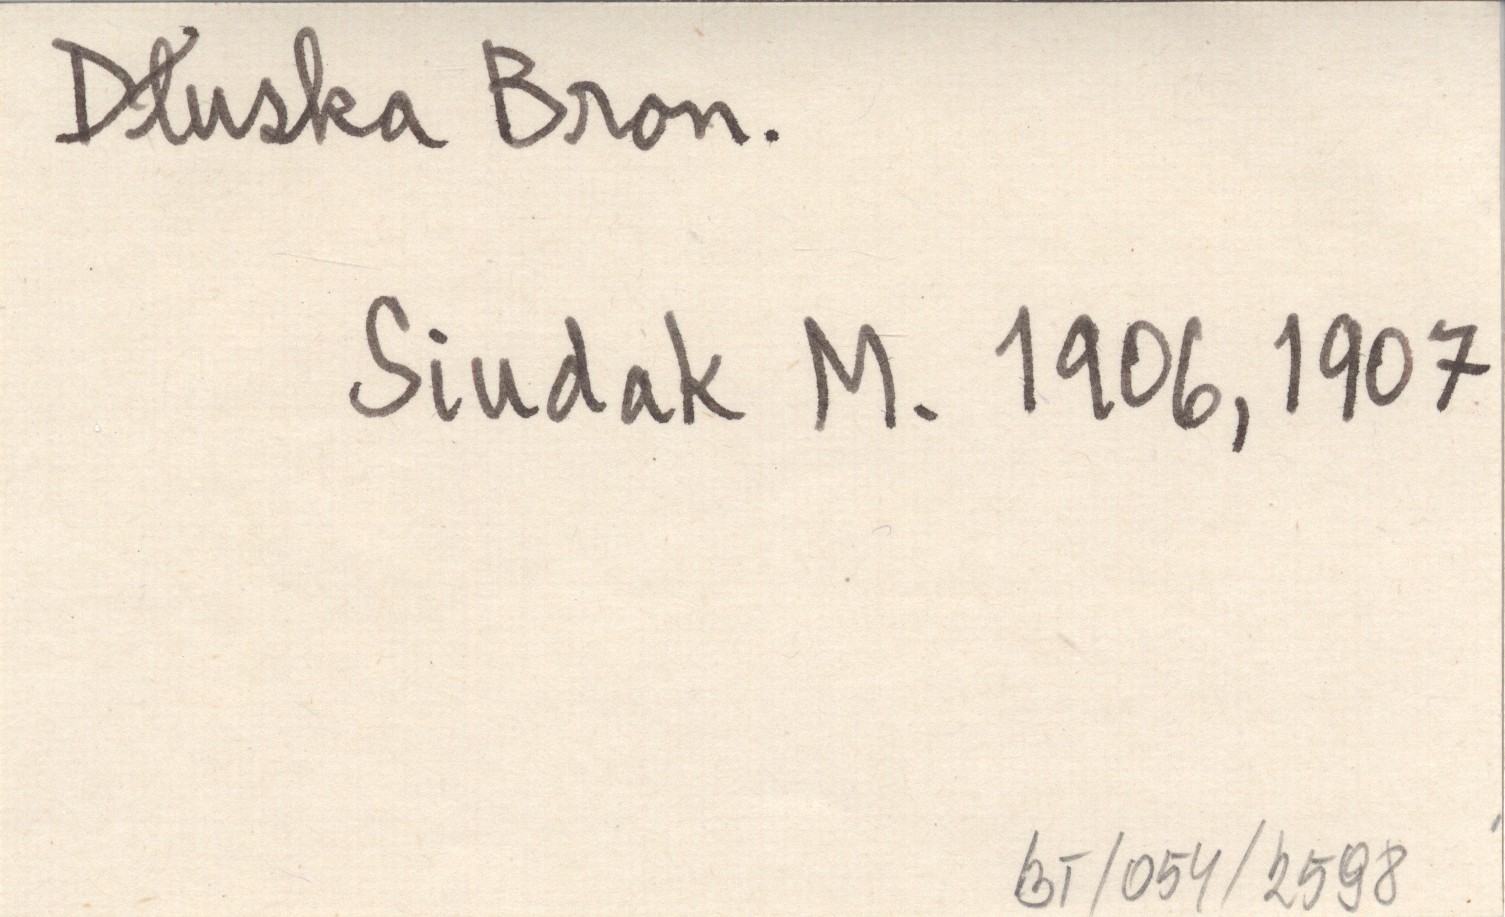 Dłuska Bron.
Siudak M. 1906, 1907
BT/054/2598